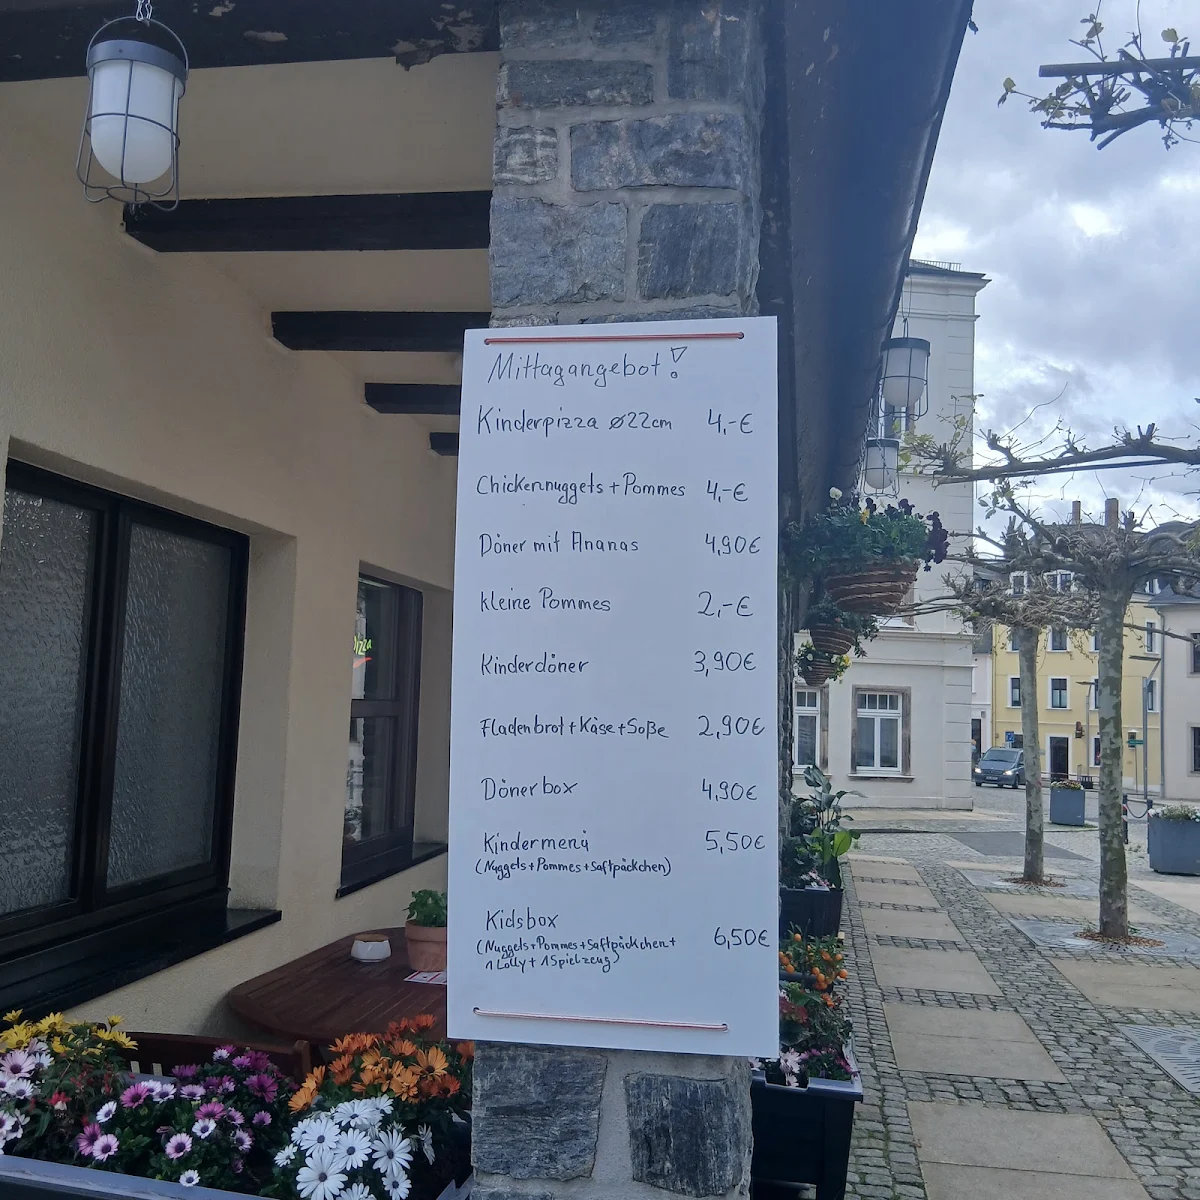 Mittagangebot!
Kinderpizza ø22cm 4,-€
Chickennuggets+Pommes 4,-€
Döner mit Ananas 4,90€
kleine Pommes 2,-€
Kinderdöner 3,90€
Fladenbrot+Käse+Soße 2,90€
Dönerbox 4,90€
Kindermenü 5,50€
(Nuggets+Pommes+Saftpäckchen)
Kidsbox 6,50€
(Nuggets+Pommes+Saftpäckchen+
1 Lolly+ 1 Spielzeug)